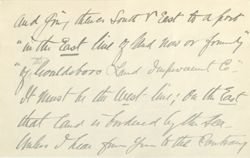 and from thence South & East to a post
"in the East line of land now or formerly"
"of the Waldoboro Land Improvement Co"
It must be the West line; On the East
that land is bordered by the Sea.
Unless I hear from you to the Contrary